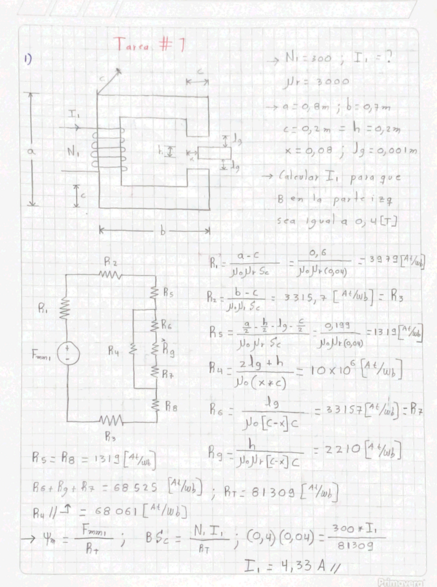 Tarea # 7
1)
→ N₁ = 300 ; I₁ = ?
μr = 3000
→ a = 0,8m ; b = 0,7m
c = 0,2m = h = 0,2m
x = 0,08 ; lg = 0,001m
→ Calcular I₁ para que
B en la parte izq
sea igual a 0,4[T]
c
I₁
N₁
a
c
b
h
x
lg
lg
R₁ = a-c / μ₀μr Sc = 0,6 / μ₀μr(0,04) = 3979 [At/wb]
R₂ = b-c / μ₀μr Sc = 3315,7 [At/wb] = R₃
R₅ = a/2 - h/2 - lg - c/2 / μ₀μr Sc = 0,199 / μ₀μr(0,04) = 1319 [At/wb]
R₄ = 2lg + h / μ₀(x*c) = 10×10⁶ [At/wb]
R₆ = lg / μ₀[c-x]c = 33157 [At/wb] = R₇
R₉ = h / μ₀μr[c-x]c = 2210 [At/wb]
R₂
R₁
R₅
R₆
R₄
R₉
R₇
Fmm₁
R₈
R₃
R₅ = R₈ = 1319 [At/wb]
R₆ + R₉ + R₇ = 68525 [At/wb] ; RT = 81309 [At/wb]
R₄ // ↑ = 68061 [At/wb]
→ Ψm = Fmm₁ / RT ; B Sc = N₁ I₁ / RT ; (0,4)(0,04) = 300 * I₁ / 81309
I₁ = 4,33 A //